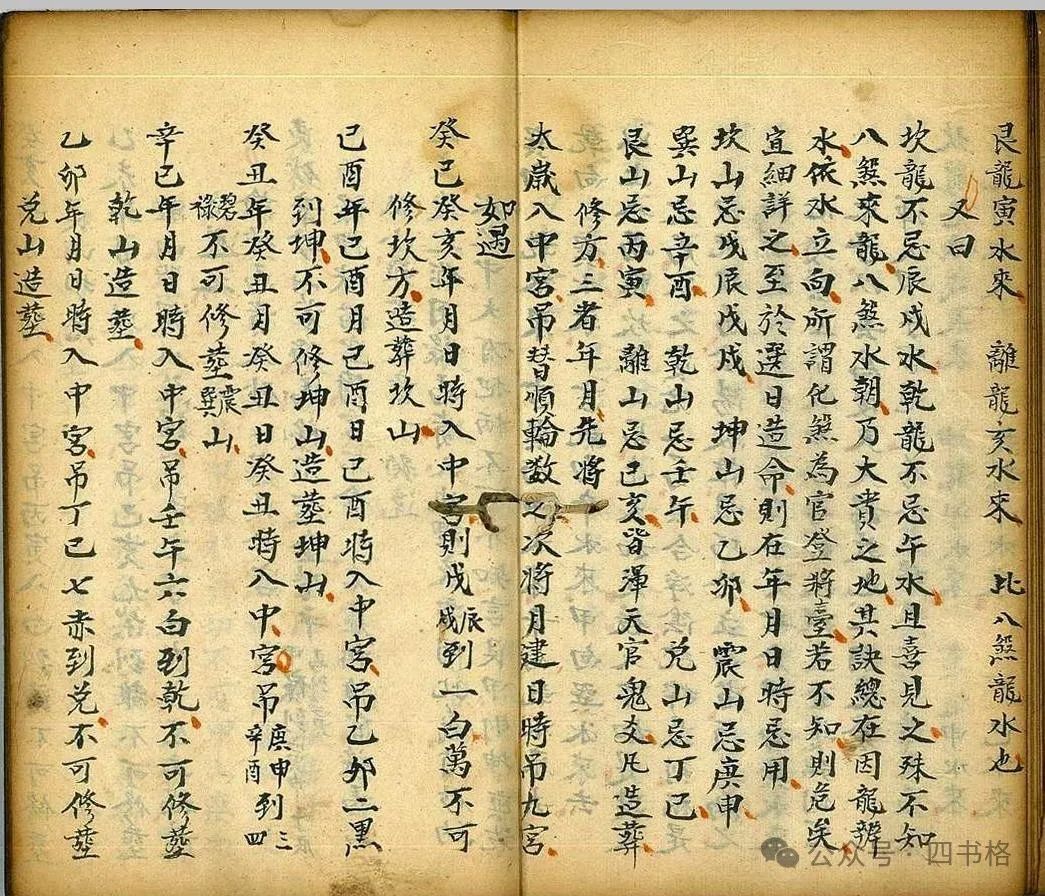 艮龍寅水來　離龍亥水來　比八煞龍水也
又曰
坎龍不忌辰戌水乾龍不忌午水且喜見之殊不知
八煞來龍八煞水朝乃大貴之地其訣總在因龍辨
水依水立向所謂化煞為官登將臺若不知則危矣
宜細詳之至於選日造命則在年月日時忌用
坎山忌戊辰戊戌　坤山忌乙卯　震山忌庚申
巽山忌辛酉　乾山忌壬午　兌山忌丁巳
艮山忌丙寅　離山忌己亥皆渾天官鬼爻凡造葬
修方三者年月先將
太歲入中宮吊替順輪数之次將月建日時吊九宮
如遇
癸巳癸亥年月日時入中宮則戊辰戊戌到一白萬不可
修坎方造葬坎山
己酉年己酉月己酉日己酉時入中宮吊乙卯二黑
到坤不可修坤山造塟坤山
癸丑年癸丑月癸丑日癸丑時入中宮吊庚申辛酉到三四
碧祿不可修塟震巽山
辛巳年月日時入中宮吊壬午六白到乾不可修塟
乾山造塟
乙卯年月日時入中宮吊丁巳七赤到兌不可修塟
兌山造塟
公众号 四书格